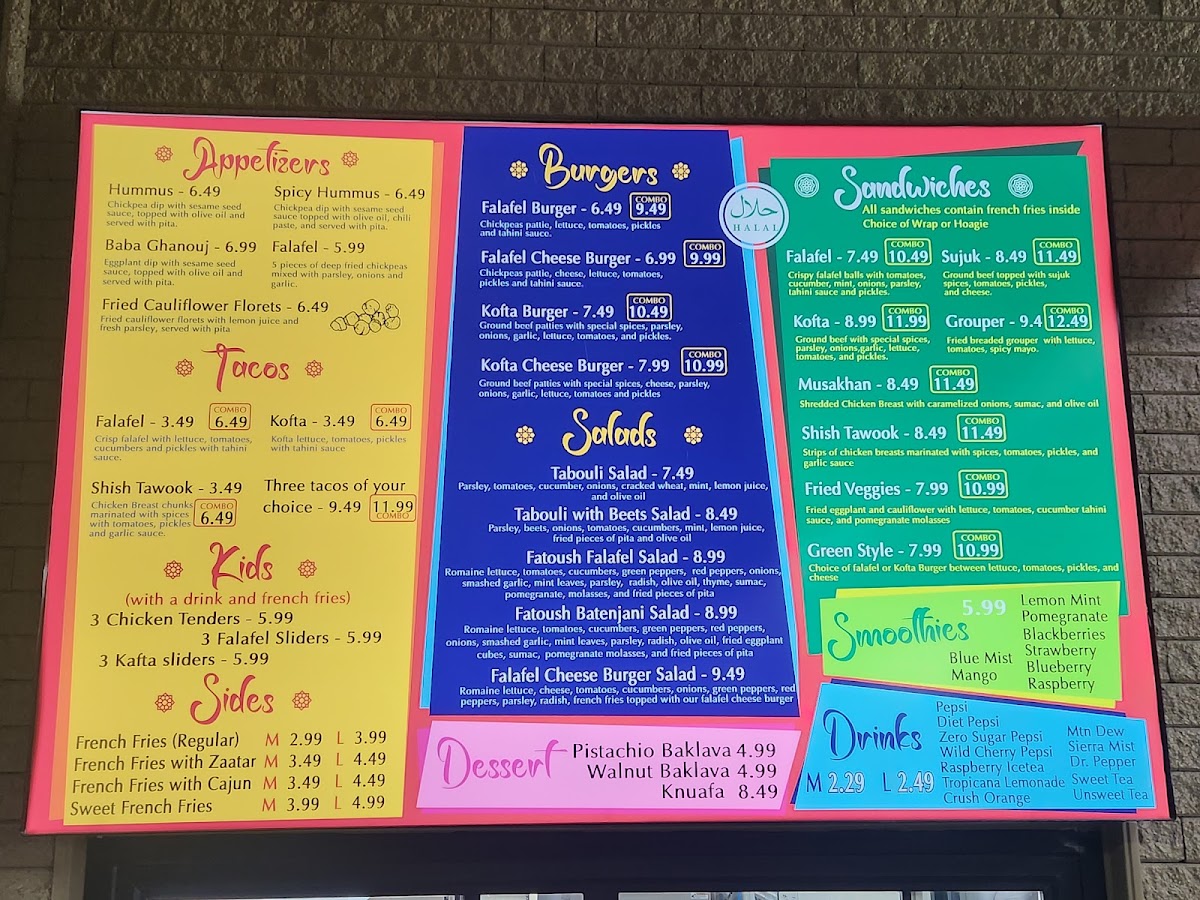 Appetizers
Hummus - 6.49
Chickpea dip with sesame seed
sauce, topped with olive oil and
served with pita.
Spicy Hummus - 6.49
Chickpea dip with sesame
sauce topped with olive oil, chili
paste, and served with pita.
Baba Ghanouj - 6.99
Eggplant dip with sesame seed
sauce, topped with olive oil and
served with pita.
Falafel - 5.99
5 pieces of deep fried chickpeas
mixed with parsley, onions and
garlic.
Fried Cauliflower Florets - 6.49
Fried cauliflower florets with lemon juice and
fresh parsley, served with pita
Tacos
Falafel - 3.49 COMBO 6.49
Crisp falafel with lettuce, tomatoes,
cucumbers and pickles with tahini
sauce.
Kofta - 3.49 COMBO 6.49
Kofta lettuce, tomatoes, pickles
with tahini sauce
Shish Tawook - 3.49
Chicken Breast chunks
marinated with spices
with tomatoes, pickles
and garlic sauce.
COMBO
6.49
Three tacos of your
choice - 9.49 11.99
COMBO
Kids
(with a drink and french fries)
3 Chicken Tenders - 5.99
3 Falafel Sliders - 5.99
3 Kafta sliders - 5.99
Sides
French Fries (Regular) M 2.99 L 3.99
French Fries with Zaatar M 3.49 L 4.49
French Fries with Cajun M 3.49 L 4.49
Sweet French Fries M 3.99 L 4.99
Burgers
Falafel Burger - 6.49 COMBO 9.49
Chickpeas pattie, lettuce, tomatoes, pickles
and tahini sauce.
Falafel Cheese Burger - 6.99 COMBO 9.99
Chickpeas pattie, cheese, lettuce, tomatoes,
pickles and tahini sauce.
Kofta Burger - 7.49 COMBO 10.49
Ground beef patties with special spices, parsley,
onions, garlic, lettuce, tomatoes, and pickles.
Kofta Cheese Burger - 7.99 COMBO 10.99
Ground beef patties with special spices, cheese, parsley,
onions, garlic, lettuce, tomatoes and pickles
Salads
Tabouli Salad - 7.49
Parsley, tomatoes, cucumber, onions, cracked wheat, mint, lemon juice,
and olive oil
Tabouli with Beets Salad - 8.49
Parsley, beets, onions, tomatoes, cucumbers, mint, lemon juice,
fried pieces of pita and olive oil
Fatoush Falafel Salad - 8.99
Romaine lettuce, tomatoes, cucumbers, green peppers, red peppers, onions,
smashed garlic, mint leaves, parsley, radish, olive oil, thyme, sumac,
pomegranate, molasses, and fried pieces of pita
Fatoush Batenjani Salad - 8.99
Romaine lettuce, tomatoes, cucumbers, green peppers, red peppers,
onions, smashed garlic, mint leaves, parsley, radish, olive oil, fried eggplant
cubes, sumac, pomegranate molasses, and fried pieces of pita
Falafel Cheese Burger Salad - 9.49
Romaine lettuce, cheese, tomatoes, cucumbers, onions, green peppers, red
peppers, parsley, radish, french fries topped with our falafel cheese burger
Dessert
Pistachio Baklava 4.99
Walnut Baklava 4.99
Knuafa 8.49
حلال
HALAL
Sandwiches
All sandwiches contain french fries inside
Choice of Wrap or Hoagie
Falafel - 7.49 COMBO 10.49
Crispy falafel balls with tomatoes,
cucumber, mint, onions, parsley,
tahini sauce and pickles.
Sujuk - 8.49 COMBO 11.49
Ground beef topped with sujuk
spices, tomatoes, pickles,
and cheese.
Kofta - 8.99 COMBO 11.99
Ground beef with special spices,
parsley, onions,garlic, lettuce,
tomatoes, and pickles.
Grouper - 9.4 COMBO 12.49
Fried breaded grouper with lettuce,
tomatoes, spicy mayo.
Musakhan - 8.49 COMBO 11.49
Shredded Chicken Breast with caramelized onions, sumac, and olive oil
Shish Tawook - 8.49 COMBO 11.49
Strips of chicken breasts marinated with spices, tomatoes, pickles, and
garlic sauce
Fried Veggies - 7.99 COMBO 10.99
Fried eggplant and cauliflower with lettuce, tomatoes, cucumber tahini
sauce, and pomegranate molasses
Green Style - 7.99 COMBO 10.99
Choice of falafel or Kofta Burger between lettuce, tomatoes, pickles, and
cheese
Smoothies
5.99
Blue Mist
Mango
Lemon Mint
Pomegranate
Blackberries
Strawberry
Blueberry
Raspberry
Drinks
M 2.29 L 2.49
Pepsi
Diet Pepsi
Zero Sugar Pepsi
Wild Cherry Pepsi
Raspberry Icetea
Tropicana Lemonade
Crush Orange
Mtn Dew
Sierra Mist
Dr. Pepper
Sweet Tea
Unsweet Tea